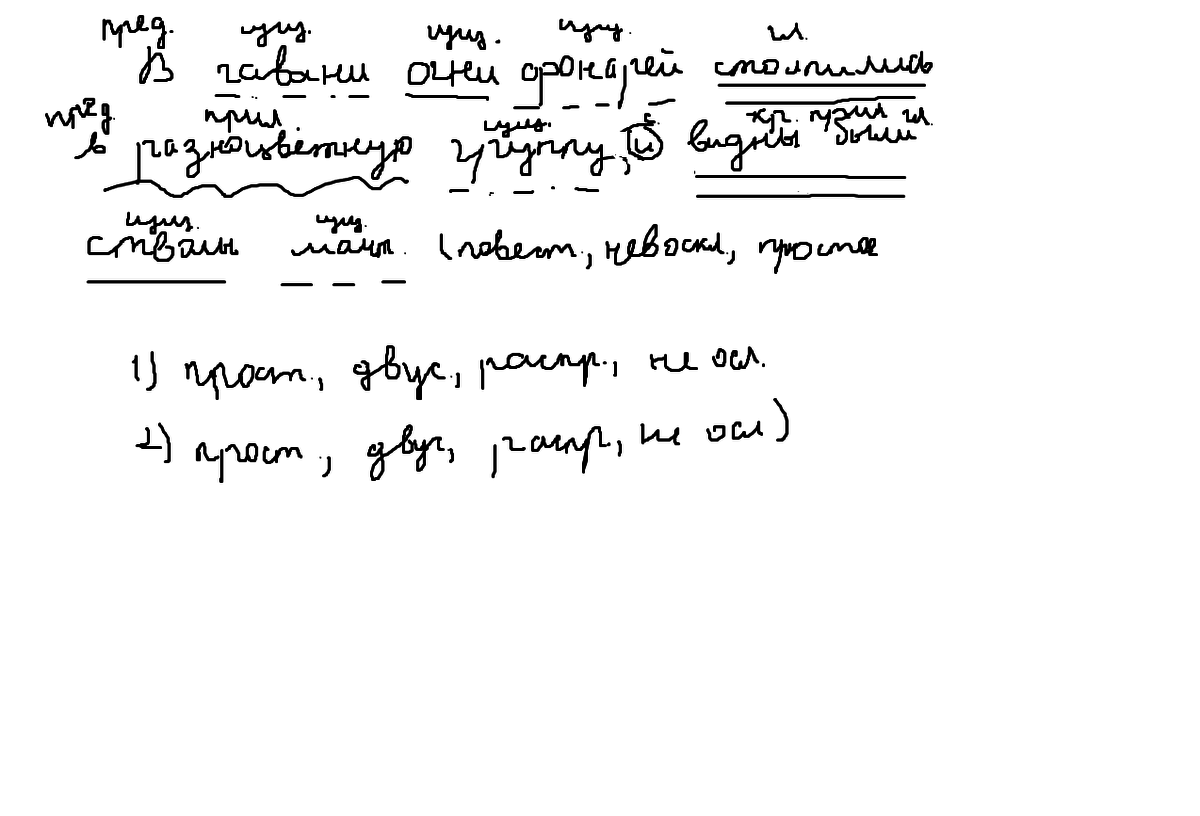 пред. сущ. сущ. сущ. гл.
В гавани огни фонарей столпились
пред. прил. сущ. с. кр. прил гл.
в разноцветную группу, и видны были
сущ. сущ.
стволы мачт. (повест., невоскл, простое
1) прост., двус., распр., не осл.
2) прост, двус, распр, не осл)